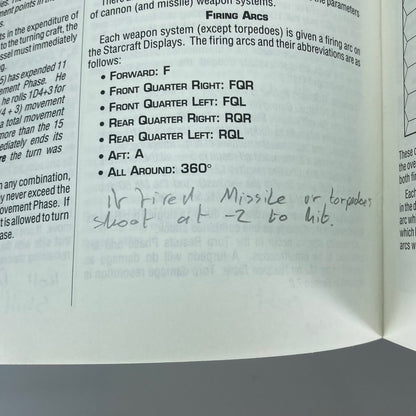 ts in the expenditure of
to the turning craft, the
ssel must immediately
g.
5) has expended 11
vement Phase. He
he rolls 1D4+3 for
(4 + 3) movement
a total movement
more than the 15
ediately ends its
re the turn was
n any combination,
y never exceed the
ovement Phase. If
t is allowed to turn
ase.
the parameters
of cannon (and missile) weapon systems.
FIRING ARCS
Each weapon system (except torpedoes) is given a firing arc on
the Starcraft Displays. The firing arcs and their abbreviations are as
follows:
• FORWARD: F
• FRONT QUARTER RIGHT: FQR
• FRONT QUARTER LEFT: FQL
• REAR QUARTER RIGHT: RQR
• REAR QUARTER LEFT: RQL
• AFT: A
• ALL AROUND: 360°
If fired Missile or torpedoes
shoot at -2 to hit.
These
the ove
both fir
Each
in the d
arc we
which
arcs w